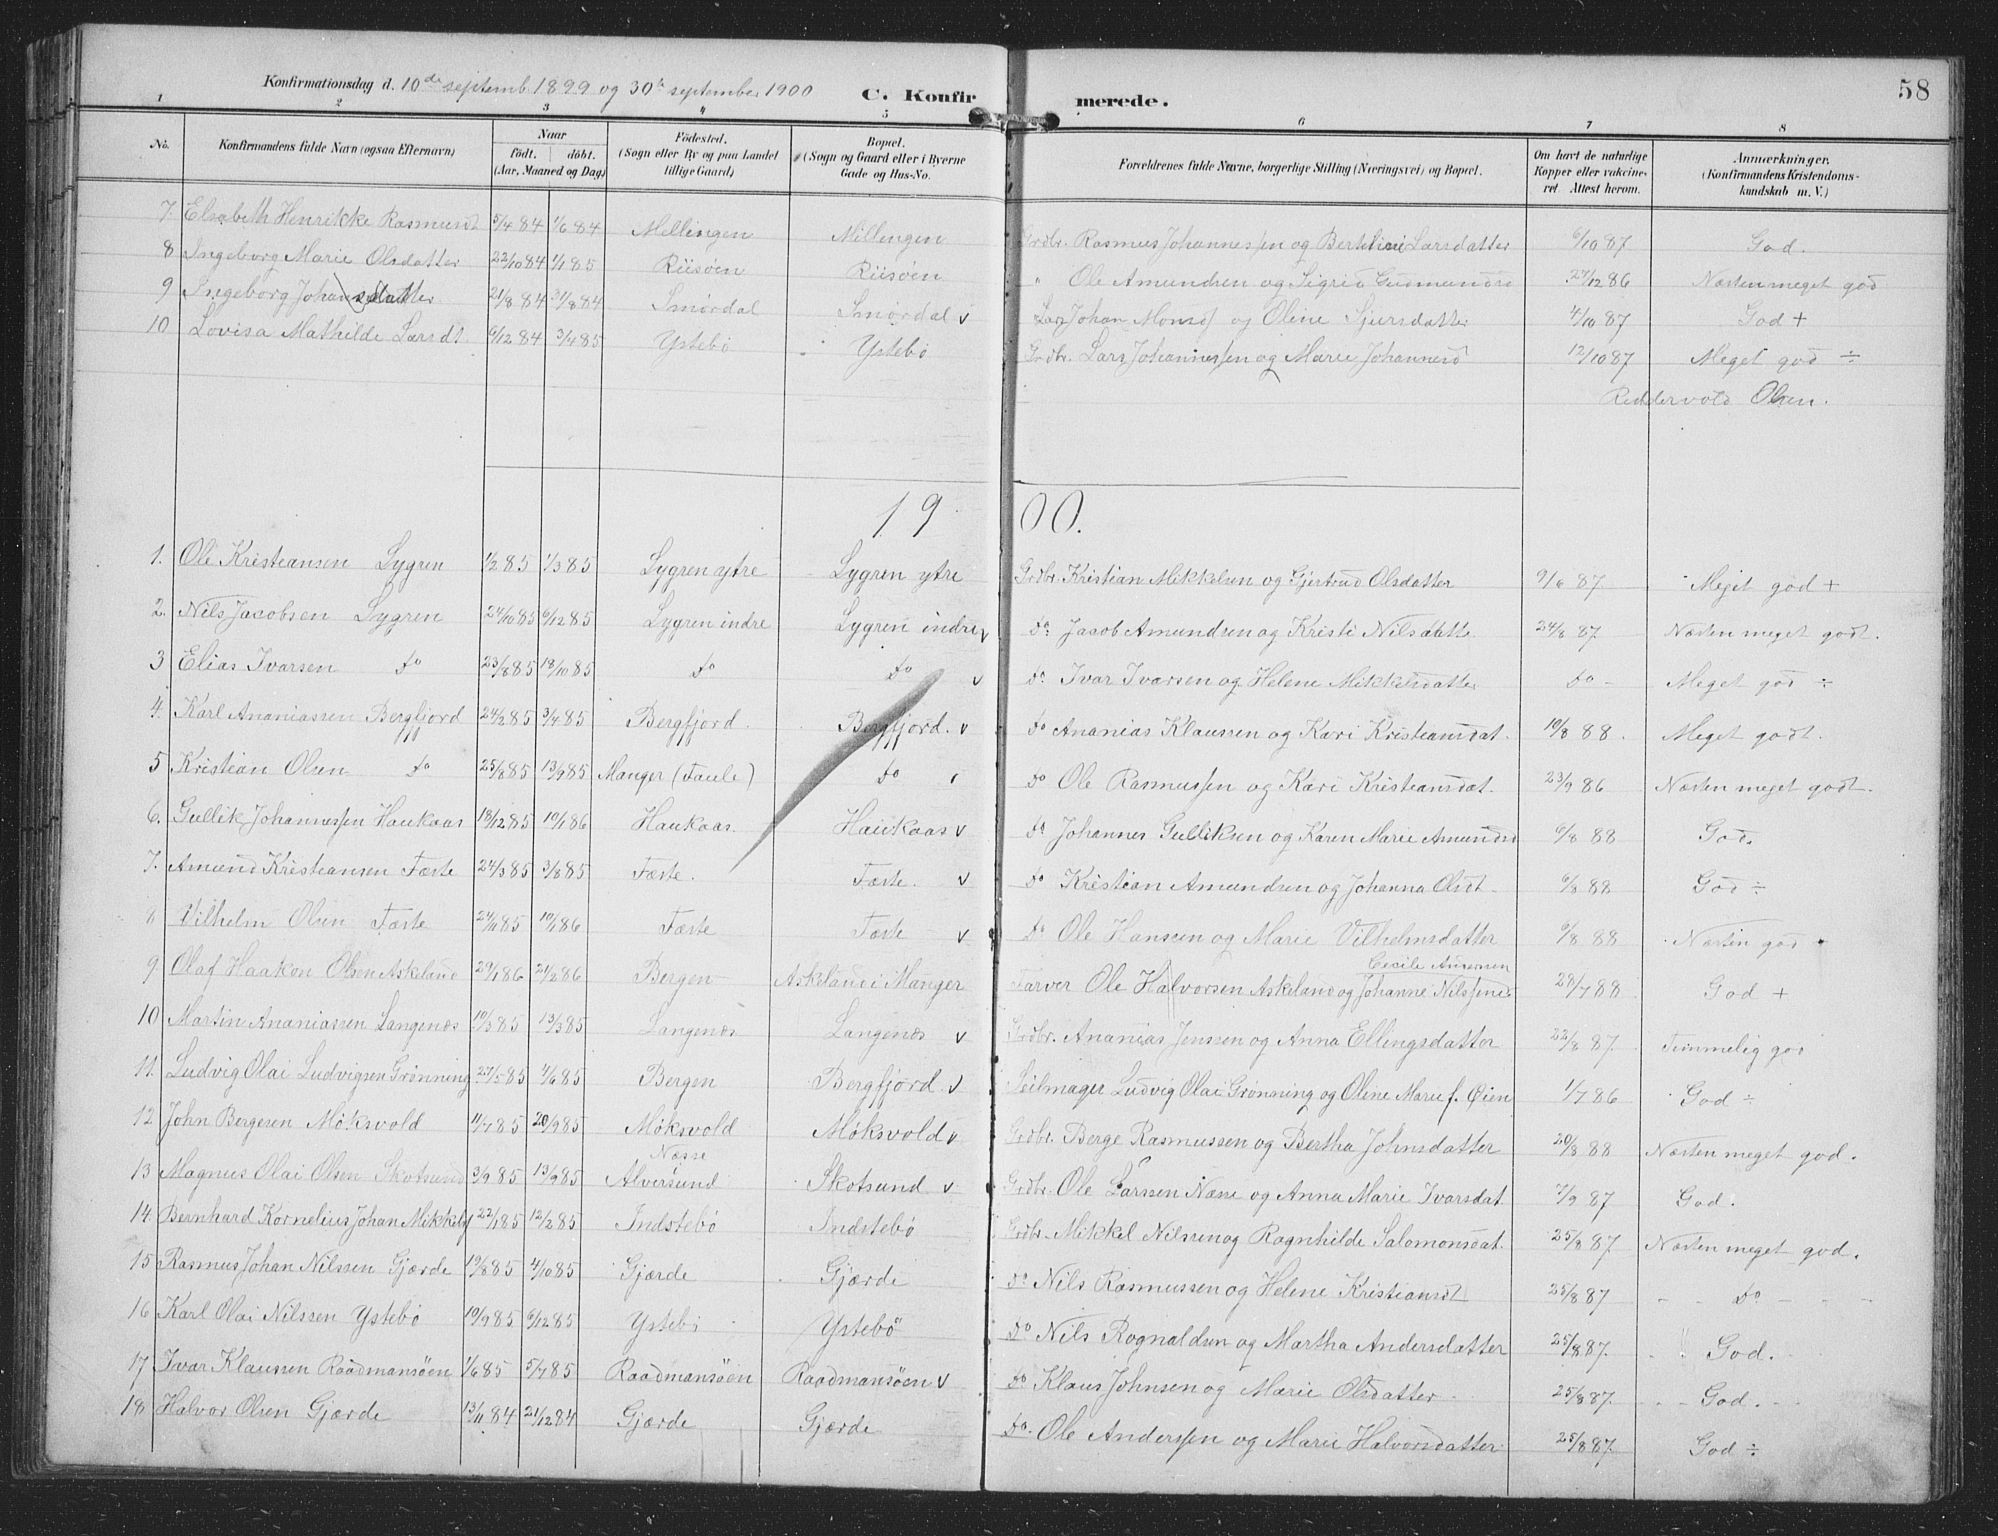 58
Konfirmationsdag d. 10de septemb. 1899 og 30te september 1900
C. Konfirmerede.
1 2 3 4 5 6 7 8
No. Konfirmandens fulde Navn (ogsaa Efternavn) Naar födt. döbt. (Aar, Maaned og Dag) Födested. (Sogn eller By og paa Landet tillige Gaard) Bopæl. (Sogn og Gaard eller i Byerne Gade og Hus-No. Forældrenes fulde Navne, borgerlige Stilling (Næringsvei) og Bopæl. Om havt de naturlige Kopper eller vakcineret. Attest herom. Anmærkninger. (Konfirmandens Kristendomskundskab m. V.)
7 Elisabeth Henrikke Rasmusdt 5/4 84 1/6 84 Millingen Millingen Grdbr. Rasmus Johannessen og Berteline Larsdatter 6/10 87 God.
8 Ingeborg Marie Olsdatter 22/10 84 1/1 85 Riisøen Riisøen " Ole Amundsen og Sigrid Gudmundsd 27/12 86 Næsten meget god
9 Ingeborg Johansdatter 21/8 84 31/8 84 Smørdal Smørdal v Johan Monss og Oline Sjursdatter 4/10 87 God +
10 Lovisa Mathilde Larsdt. 6/12 84 3/4 85 Ystebø Ystebø Grdbr. Lars Johannessen og Marie Johannesd 12/10 87 Meget god ÷
Reddervold Olsen.
1900.
1. Ole Kristiansen Lygren 1/2 85 1/3 85 Lygren ytre Lygren ytre Grdbr. Kristian Mikkelsen og Gjertrud Olsdatter 9/6 87 Meget god +
2. Nils Jacobsen Lygren 24/10 85 6/12 85 Lygren indre Lygren indre v Do. Jacob Amundsen og Kristi Nilsdatte 24/8 87 Næsten meget godt.
3 Elias Ivarsen do 23/8 85 18/10 85 do do v Do. Ivar Ivarsen og Helene Mikkelsdatter do - Meget god ÷
4. Karl Ananiassen Bergfjord 24/2 85 3/4 85 Bergfjord. Bergfjord. v Do Ananias Klaussen og Kari Kristiansdat. 10/8 88. Meget godt.
5 Kristian Olsen do 25/8 85 13/9 85 Manger (Faule) do Do Ole Rasmussen og Kari Kristiansdat. 23/9 86 Næsten meget godt.
6. Gullik Johannessen Haukaas 18/12 85 10/1 86 Haukaas. Haukaas v Do Johannes Gulliksen og Karen Marie Amundsd 6/8 88 God.
7. Amund Kristiansen Fæste 24/3 85 3/8 85 Fæste. Fæste. v Do Kristian Amundsen og Johanna Olsdt. 6/8 88 God ÷
8 Vilhelm Olsen Fæste 24/11 85 10/1 86 Fæste Fæste v Do Ole Hansen og Marie Vilhelmsdatter 6/8 88 Næsten god
9 Olaf Haakon Olsen Askeland 29/1 86 21/2 86 Bergen Askeland i Manger Farver Ole Halvorsen Askeland og Johanne Nilssine Cecile Andersen 27/7 88 God +
10 Martin Ananiassen Langenæs 10/3 85 13/3 85 Langenæs Langenæs v Grdbr. Ananias Jenssen og Anna Ellingsdatter 22/8 87. Temmelig god
11. Ludvig Olai Ludvigsen Grønning 27/5 85 7/6 85 Bergen Bergfjord v Seilmager Ludvig Olai Grønning og Oline Marie f. Øien 1/7 86 God ÷
12 John Bergesen Møksvold 11/7 85 20/9 85 Møksvold Møksvold v Grdbr. Berge Rasmussen og Bertha Johnsdatter 20/8 88 Næsten meget god.
13 Magnus Olai Olsen Skotsund 3/9 85 13/9 85 Næsse Alversund Skotsund v Grdbr. Ole Larssen Næsse og Anna Marie Ivarsdat. 7/9 87 God.
14. Bernhard Kornelius Johan Mikkels 22/1 85 12/2 85 Indstebø Indstebø Grdbr. Mikkel Nilssen og Ragnhilde Salomonsdat. 25/8 87 Næsten meget god.
15 Rasmus Johan Nilssen Gjærde 19/8 85 4/10 85 Gjærde Gjærde Do Nils Rasmussen og Helene Kristiansdt 25/8 87 - - do - - -
16 Karl Olai Nilssen Ystebø 19/9 85 6/12 85 Ystebø Ystebø Do Nils Rognaldsen og Martha Andersdatter 25/8 87. God.
17 Ivar Klaussen Raadmansøen 1/6 85 5/7 85 Raadmansøen Raadmansøen v Do Klaus Johnsen og Marie Olsdatter 25/8 87. God.
18 Halvor Olsen Gjærde 13/11 84 21/12 84 Gjærde Gjærde Do. Ole Anderssen og Marie Halvorsdatter 25/8 87. God ÷